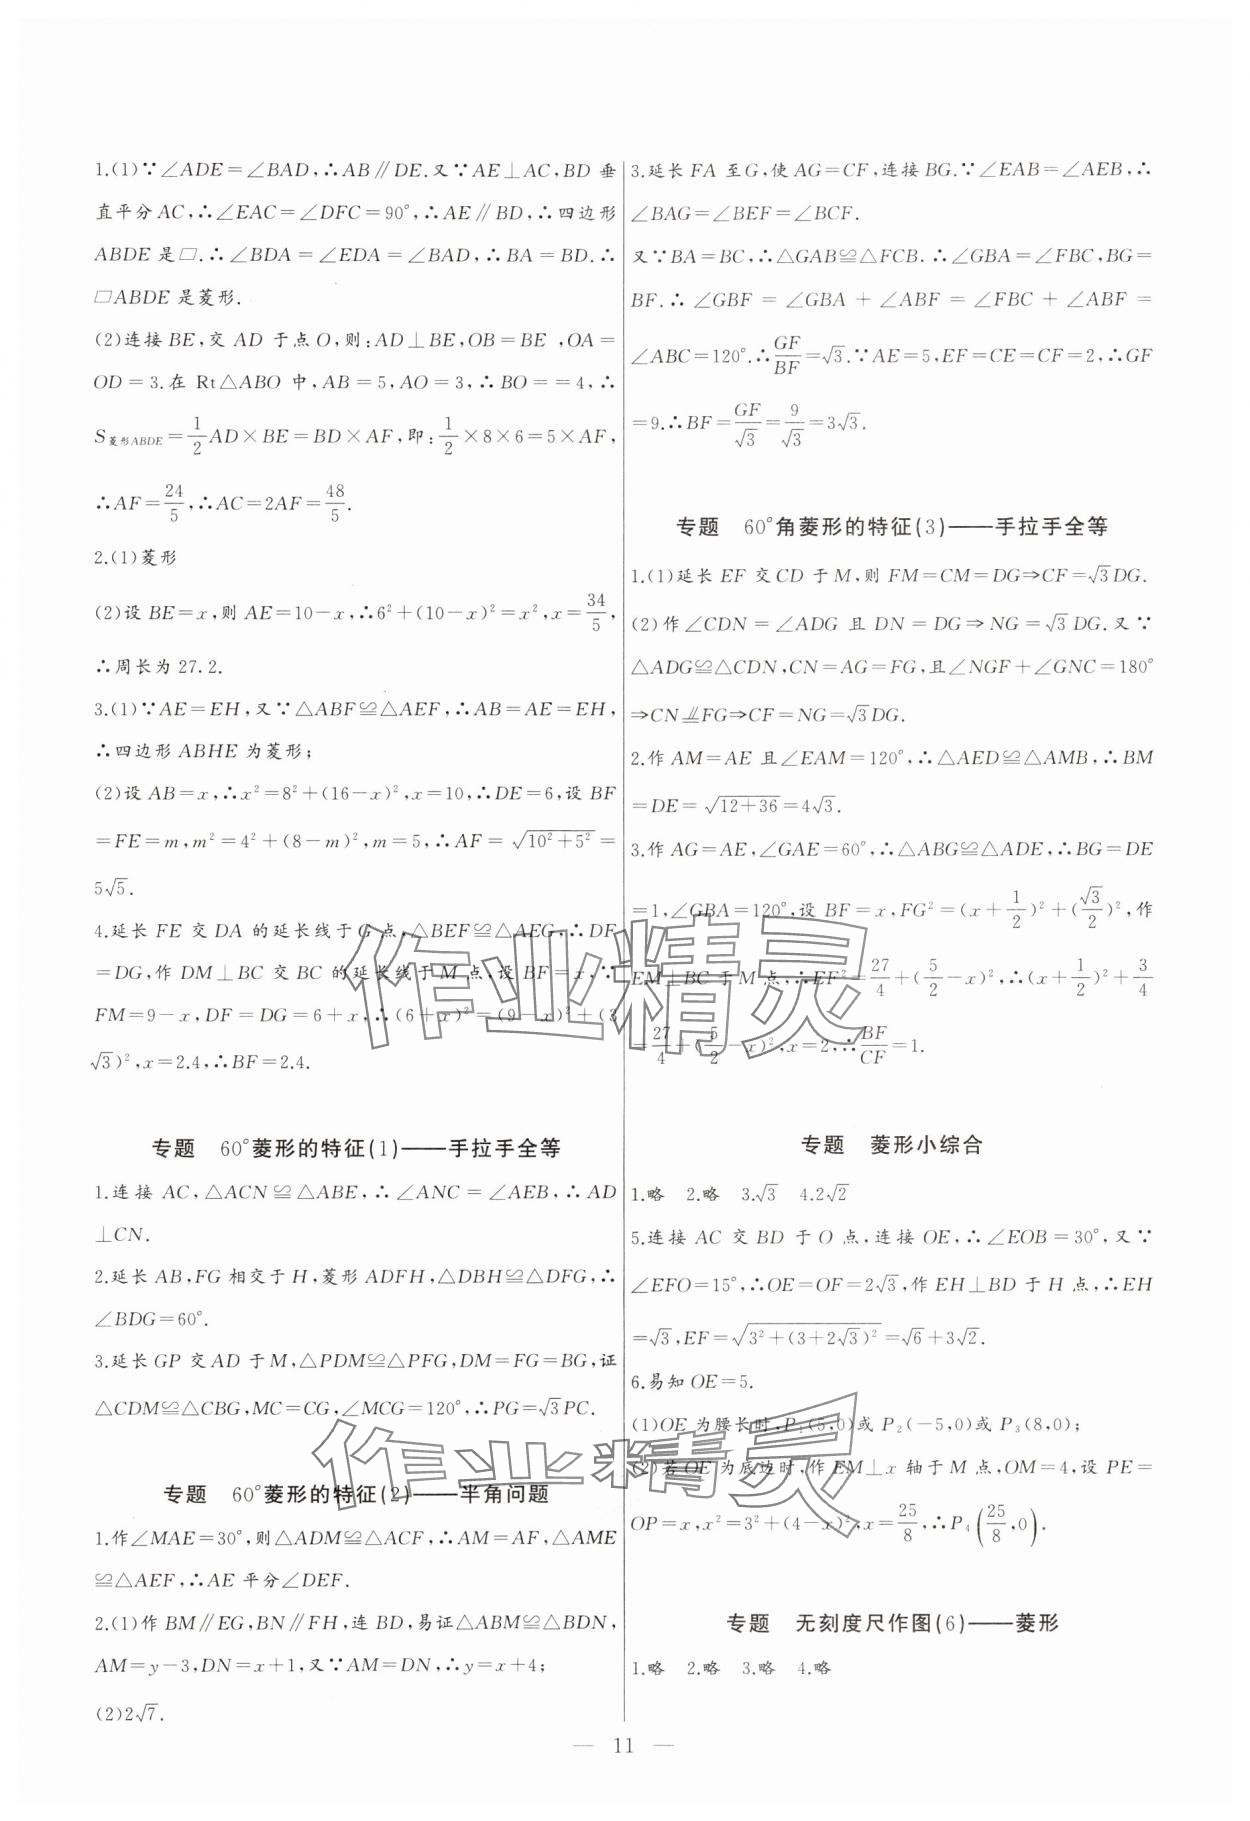 1.(1)∵∠ADE=∠BAD,∴AB∥DE.又∵AE⊥AC,BD 垂
直平分 AC,∴∠EAC=∠DFC=90°,∴AE∥BD,∴四边形
ABDE 是□.∴∠BDA=∠EDA=∠BAD,∴BA=BD.∴
□ABDE 是菱形.
(2)连接 BE,交 AD 于点 O,则:AD⊥BE,OB=BE ,OA=
OD=3.在 Rt△ABO 中,AB=5,AO=3,∴BO==4,∴
S菱形ABDE=1/2AD×BE=BD×AF,即:1/2×8×6=5×AF,
∴AF=24/5,∴AC=2AF=48/5.
2.(1)菱形
(2)设 BE=x,则 AE=10-x,∴6²+(10-x)²=x²,x=34/5,
∴周长为 27.2.
3.(1)∵AE=EH,又∵△ABF≌△AEF,∴AB=AE=EH,
∴四边形 ABHE 为菱形;
(2)设 AB=x,∴x²=8²+(16-x)²,x=10,∴DE=6,设 BF
=FE=m,m²=4²+(8-m)²,m=5,∴AF=√(10²+5²)=
5√5.
4.延长 FE 交 DA 的延长线于 G 点,△BEF≌△AEG,∴DF
=DG,作 DM⊥BC 交 BC 的延长线于 M 点,设 BF=x,∵
FM=9-x,DF=DG=6+x,∴(6+x)²=(9-x)²+(3
√3)²,x=2.4,∴BF=2.4.
专题 60°菱形的特征(1)——手拉手全等
1.连接 AC,△ACN≌△ABE,∴∠ANC=∠AEB,∴AD
⊥CN.
2.延长 AB,FG 相交于 H,菱形 ADFH,△DBH≌△DFG,∴
∠BDG=60°.
3.延长 GP 交 AD 于 M,△PDM≌△PFG,DM=FG=BG,证
△CDM≌△CBG,MC=CG,∠MCG=120°,∴PG=√3PC.
专题 60°菱形的特征(2)——半角问题
1.作∠MAE=30°,则△ADM≌△ACF,∴AM=AF,△AME
≌△AEF,∴AE 平分∠DEF.
2.(1)作 BM∥EG,BN∥FH,连 BD,易证△ABM≌△BDN,
AM=y-3,DN=x+1,又∵AM=DN,∴y=x+4;
(2)2√7.
3.延长 FA 至 G,使 AG=CF,连接 BG.∵∠EAB=∠AEB,∴
∠BAG=∠BEF=∠BCF.
又∵BA=BC,∴△GAB≌△FCB.∴∠GBA=∠FBC,BG=
BF.∴∠GBF=∠GBA+∠ABF=∠FBC+∠ABF=
∠ABC=120°.∴GF/BF=√3.∵AE=5,EF=CE=CF=2,∴GF
=9.∴BF=GF/√3=9/√3=3√3.
专题 60°角菱形的特征(3)——手拉手全等
1.(1)延长 EF 交 CD 于 M,则 FM=CM=DG⇒CF=√3DG.
(2)作∠CDN=∠ADG 且 DN=DG⇒NG=√3DG.又∵
△ADG≌△CDN,CN=AG=FG,且∠NGF+∠GNC=180°
⇒CN⥨FG⇒CF=NG=√3DG.
2.作 AM=AE 且∠EAM=120°,∴△AED≌△AMB,∴BM
=DE=√(12+36)=4√3.
3.作 AG=AE,∠GAE=60°,∴△ABG≌△ADE,∴BG=DE
=1,∠GBA=120°,设 BF=x,FG²=(x+1/2)²+(√3/2)²,作
EM⊥BC 于 M 点,∴EF²=27/4+(5/2-x)²,∴(x+1/2)²+3/4
=27/4+(5/2-x)²,x=2,∴BF/CF=1.
专题 菱形小综合
1.略 2.略 3.√3 4.2√2
5.连接 AC 交 BD 于 O 点,连接 OE,∴∠EOB=30°,又∵
∠EFO=15°,∴OE=OF=2√3,作 EH⊥BD 于 H 点,∴EH
=√3,EF=√(3²+(3+2√3)²)=√6+3√2.
6.易知 OE=5.
(1)OE 为腰长时,P₁(5,0)或 P₂(-5,0)或 P₃(8,0);
(2)若 OE 为底边时,作 EM⊥x 轴于 M 点,OM=4,设 PE=
OP=x,x²=3²+(4-x)²,x=25/8,∴P₄(25/8,0).
专题 无刻度尺作图(6)——菱形
1.略 2.略 3.略 4.略
— 11 —
作业精灵
作业精灵